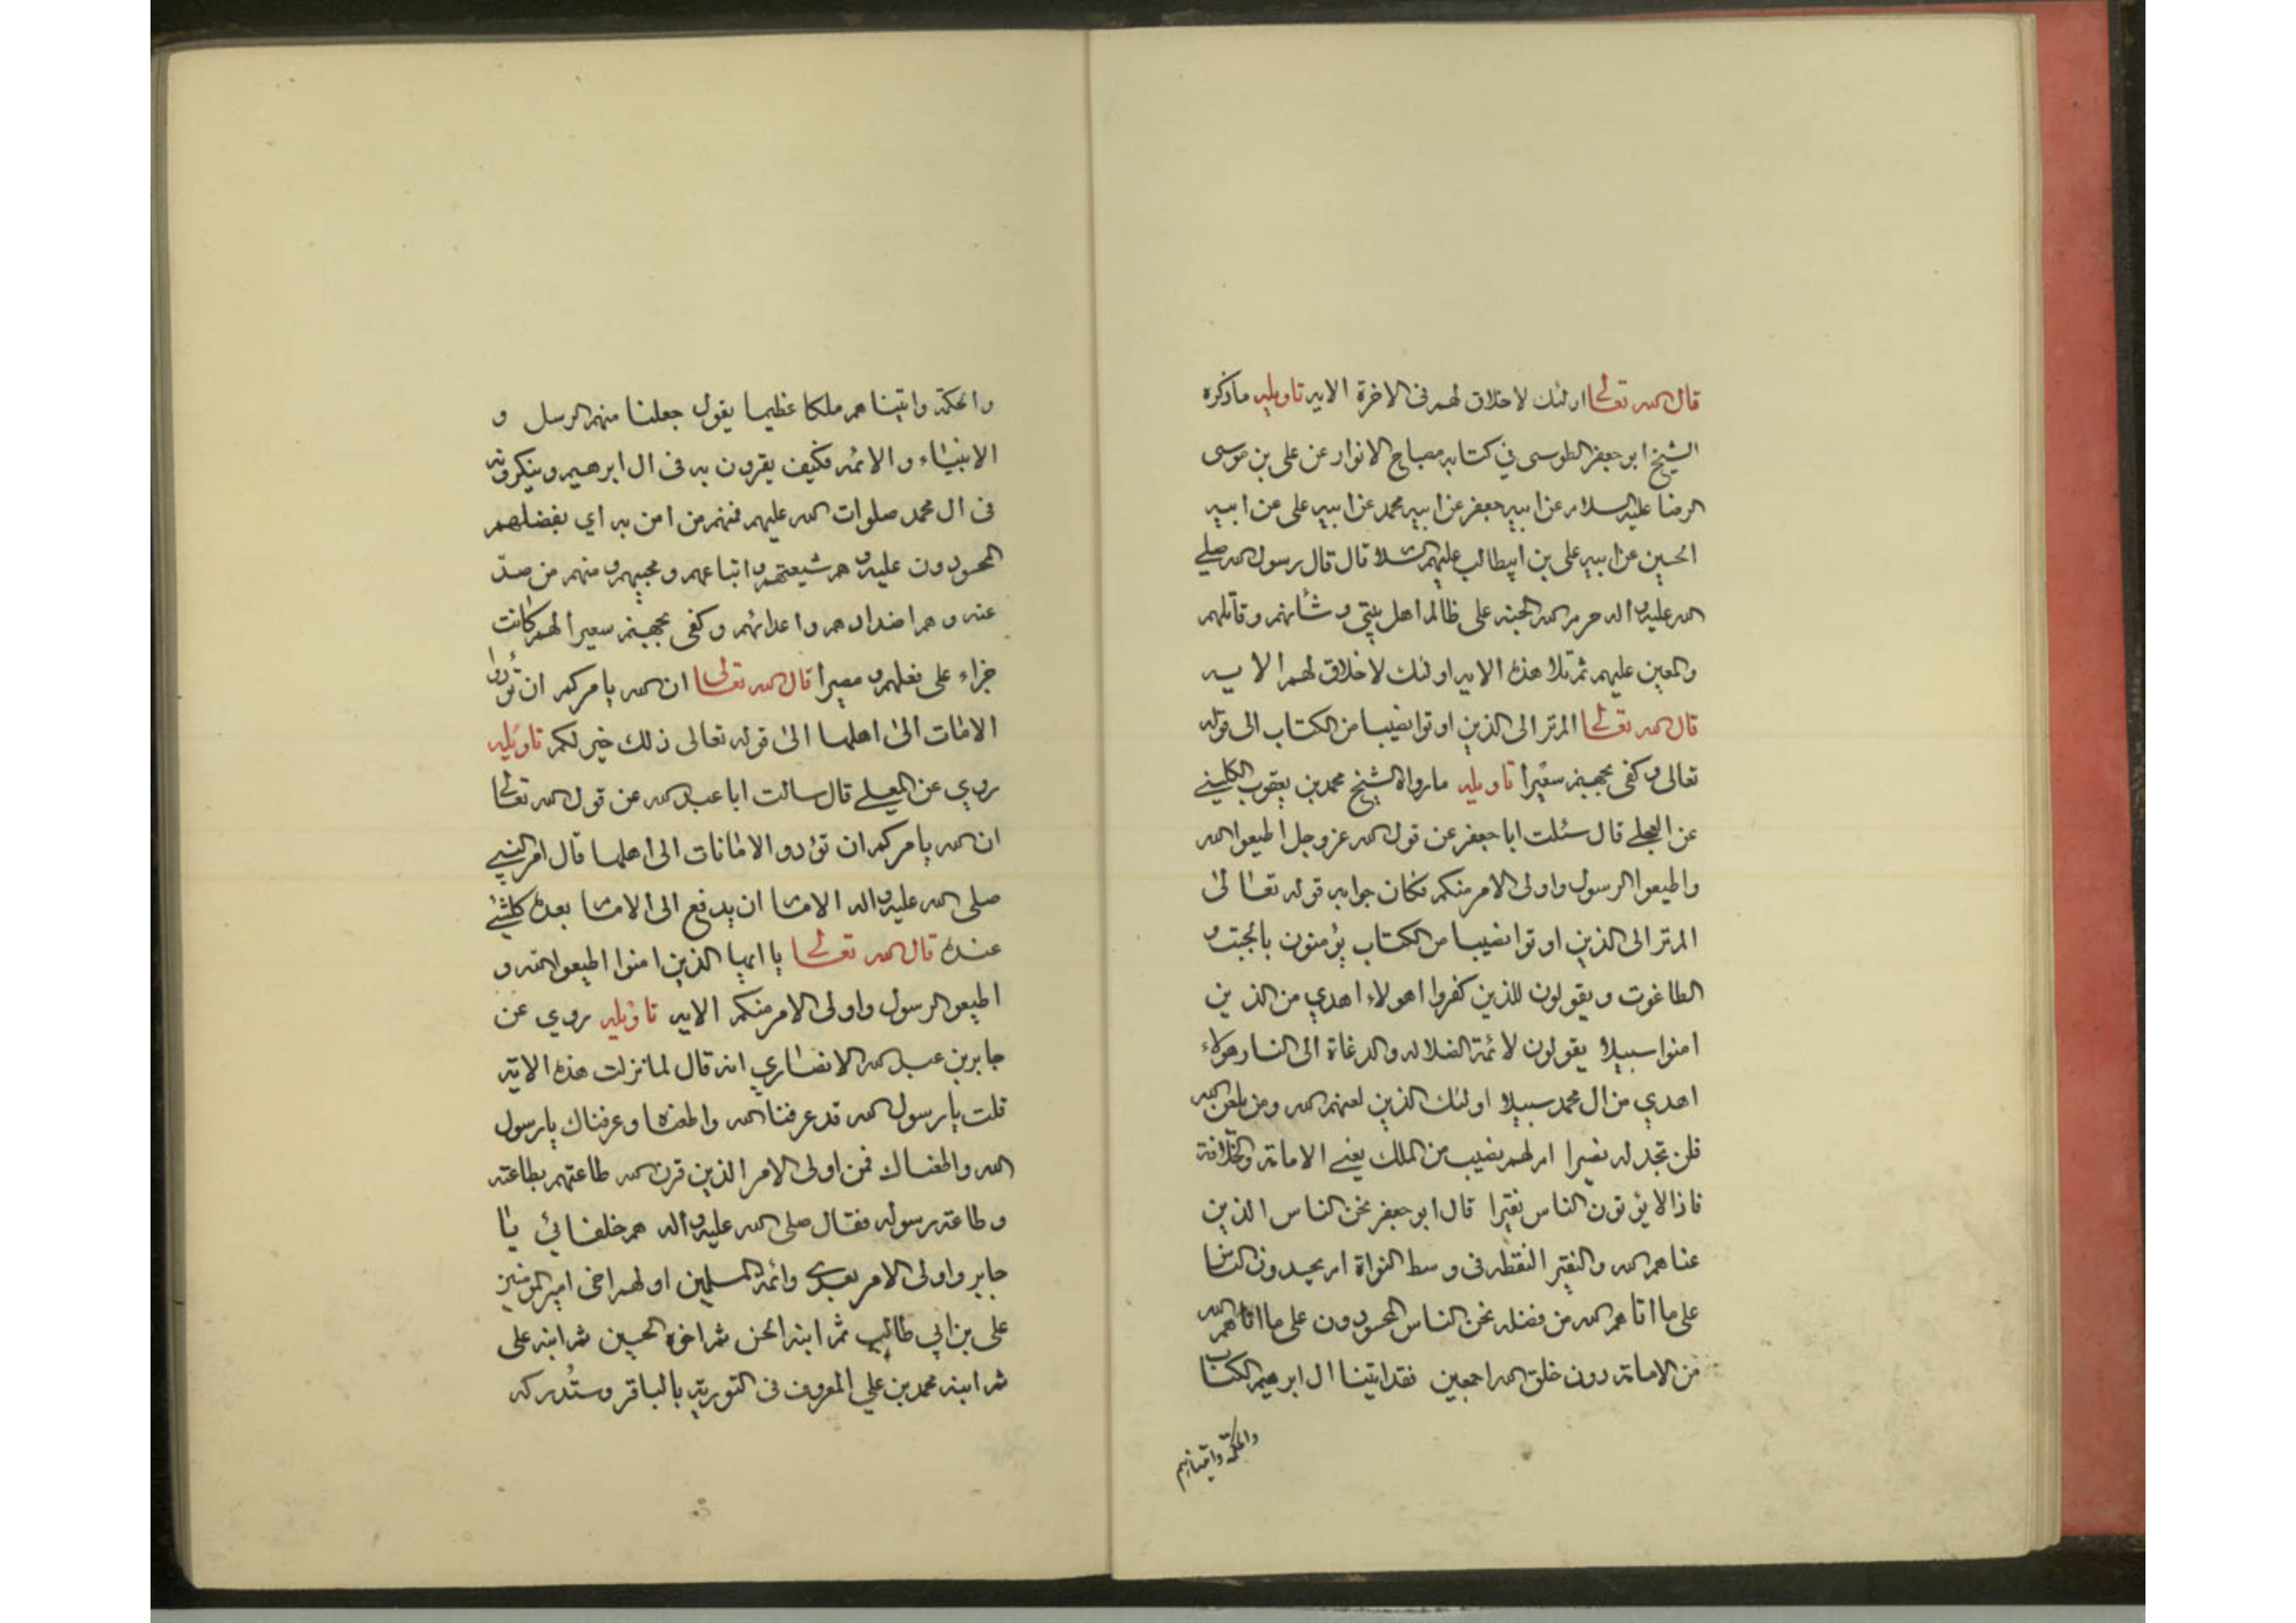 قال الله تعالى اولئك لاخلاق لهم فى الاخرة الايه تاويله ماذكره
الشيخ ابو جعفر الطوسى في كتابه مصباح الانوار عن على بن موسى
الرضا عليه السلام عن ابيه جعفر عن ابيه محمد عن ابيه على عن ابيه
الحسين عن ابيه على بن ابيطالب عليهم السلا قال قال رسول الله صلى
الله عليه واله حرم الله الجنه على ظالم اهل بيتى وشأنهم وقاتلهم
والمعين عليهم ثم تلا هذه الايه اولئك لاخلاق لهم الايه
قال الله تعالى الم تر الى الذين اوتوا نصيبا من الكتاب الى قوله
تعالى وكفى بجهنم سعيرا تاويله مارواه الشيخ محمد بن يعقوب الكليني
عن العجلي قال سئلت ابا جعفر عن قول الله عزوجل اطيعوا الله
واطيعوا الرسول واولى الامر منكم فكان جوابه قوله تعالى
الم تر الى الذين اوتوا نصيبا من الكتاب يؤمنون بالجبت و
الطاغوت ويقولون للذين كفروا اهولاء اهدي من الذين
امنوا سبيلا يقولون لائمة الضلاله والدعاة الى النار هولاء
اهدي من ال محمد سبيلا اولئك الذين لعنهم الله ومن يلعن الله
فلن تجد له نصيرا ام لهم نصيب من الملك يعني الامامة والخلافة
فاذا لايؤتون الناس نقيرا قال ابو جعفر نحن الناس الذين
عناهم الله والنقير النقطه فى وسط النواة ام يحسدون الناس
على ما اتاهم الله من فضله نحن الناس المحسودون على ما اتاهم الله
من الامامة دون خلق الله اجمعين فقد اتينا ال ابرهيم الكتاب
والحكمة واتيناهم
والحكمة واتيناهم ملكا عظيما يقول جعلنا منهم الرسل و
الانبياء والائمه فكيف يقرون به فى ال ابرهيم وينكرونه
فى ال محمد صلوات الله عليهم فمنهم من امن به اي بفضلهم
المحسودون عليه وهم شيعتهم واتباعهم ومحبيهم ومنهم من صد
عنه وهم اضدادهم واعدائهم وكفى بجهنم سعيرا لهم كانت
جزاء على فعلهم ومصيرا قال الله تعالى ان الله يامركم ان تؤدوا
الامات الى اهلها الى قوله تعالى ذلك خير لكم تاويله
روي عن المعلى قال سالت ابا عبد الله عن قول الله تعالى
ان الله يامركم ان تؤدو الامانات الى اهلها قال امر النبي
صلى الله عليه واله الامام ان يدفع الى الامام بعده كلشئ
عنده قال الله تعالى يا ايها الذين امنوا اطيعوا الله و
اطيعو الرسول واولى الامر منكم الايه تاويله روي عن
جابر بن عبد الله الانصاري انه قال لما نزلت هذه الاية
قلت يا رسول الله قد عرفنا الله واطعناه وعرفناك يا رسول
الله واطعناك فمن اولى الامر الذين قرن الله طاعتهم بطاعته
وطاعة رسوله فقال صلى الله عليه واله هم خلفائي يا
جابر واولى الامر بعدي وائمة المسلمين اولهم اخى امير المومنين
على بن ابي طالب ثم ابنه الحسن ثم اخوه الحسين ثم ابنه على
ثم ابنه محمد بن علي المعروف فى التورية بالباقر وستدركه